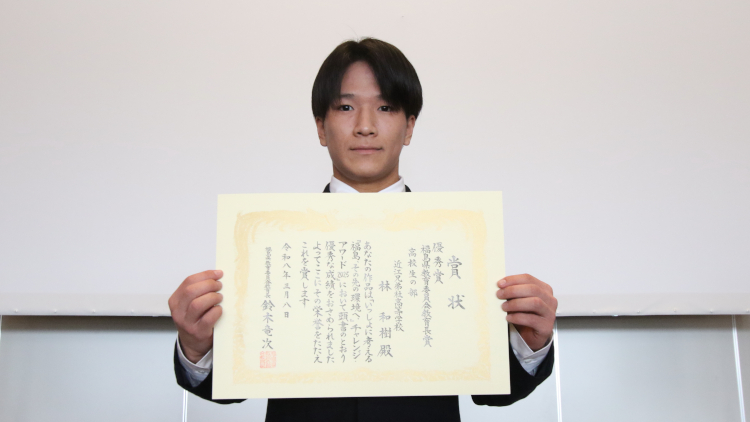 賞状
優秀賞
福島県教育委員会教育長賞
高校生の部
近江兄弟社高等学校
林 和樹 殿
あなたの作品は「いっしょに考える
「福島、その先の環境へ。」チャレンジ
アワード2025」において頭書のとおり
優秀な成績をおさめられました
よってここにその栄誉をたたえ
これを賞します
令和八年三月八日
福島県教育委員会教育長 鈴木竜次